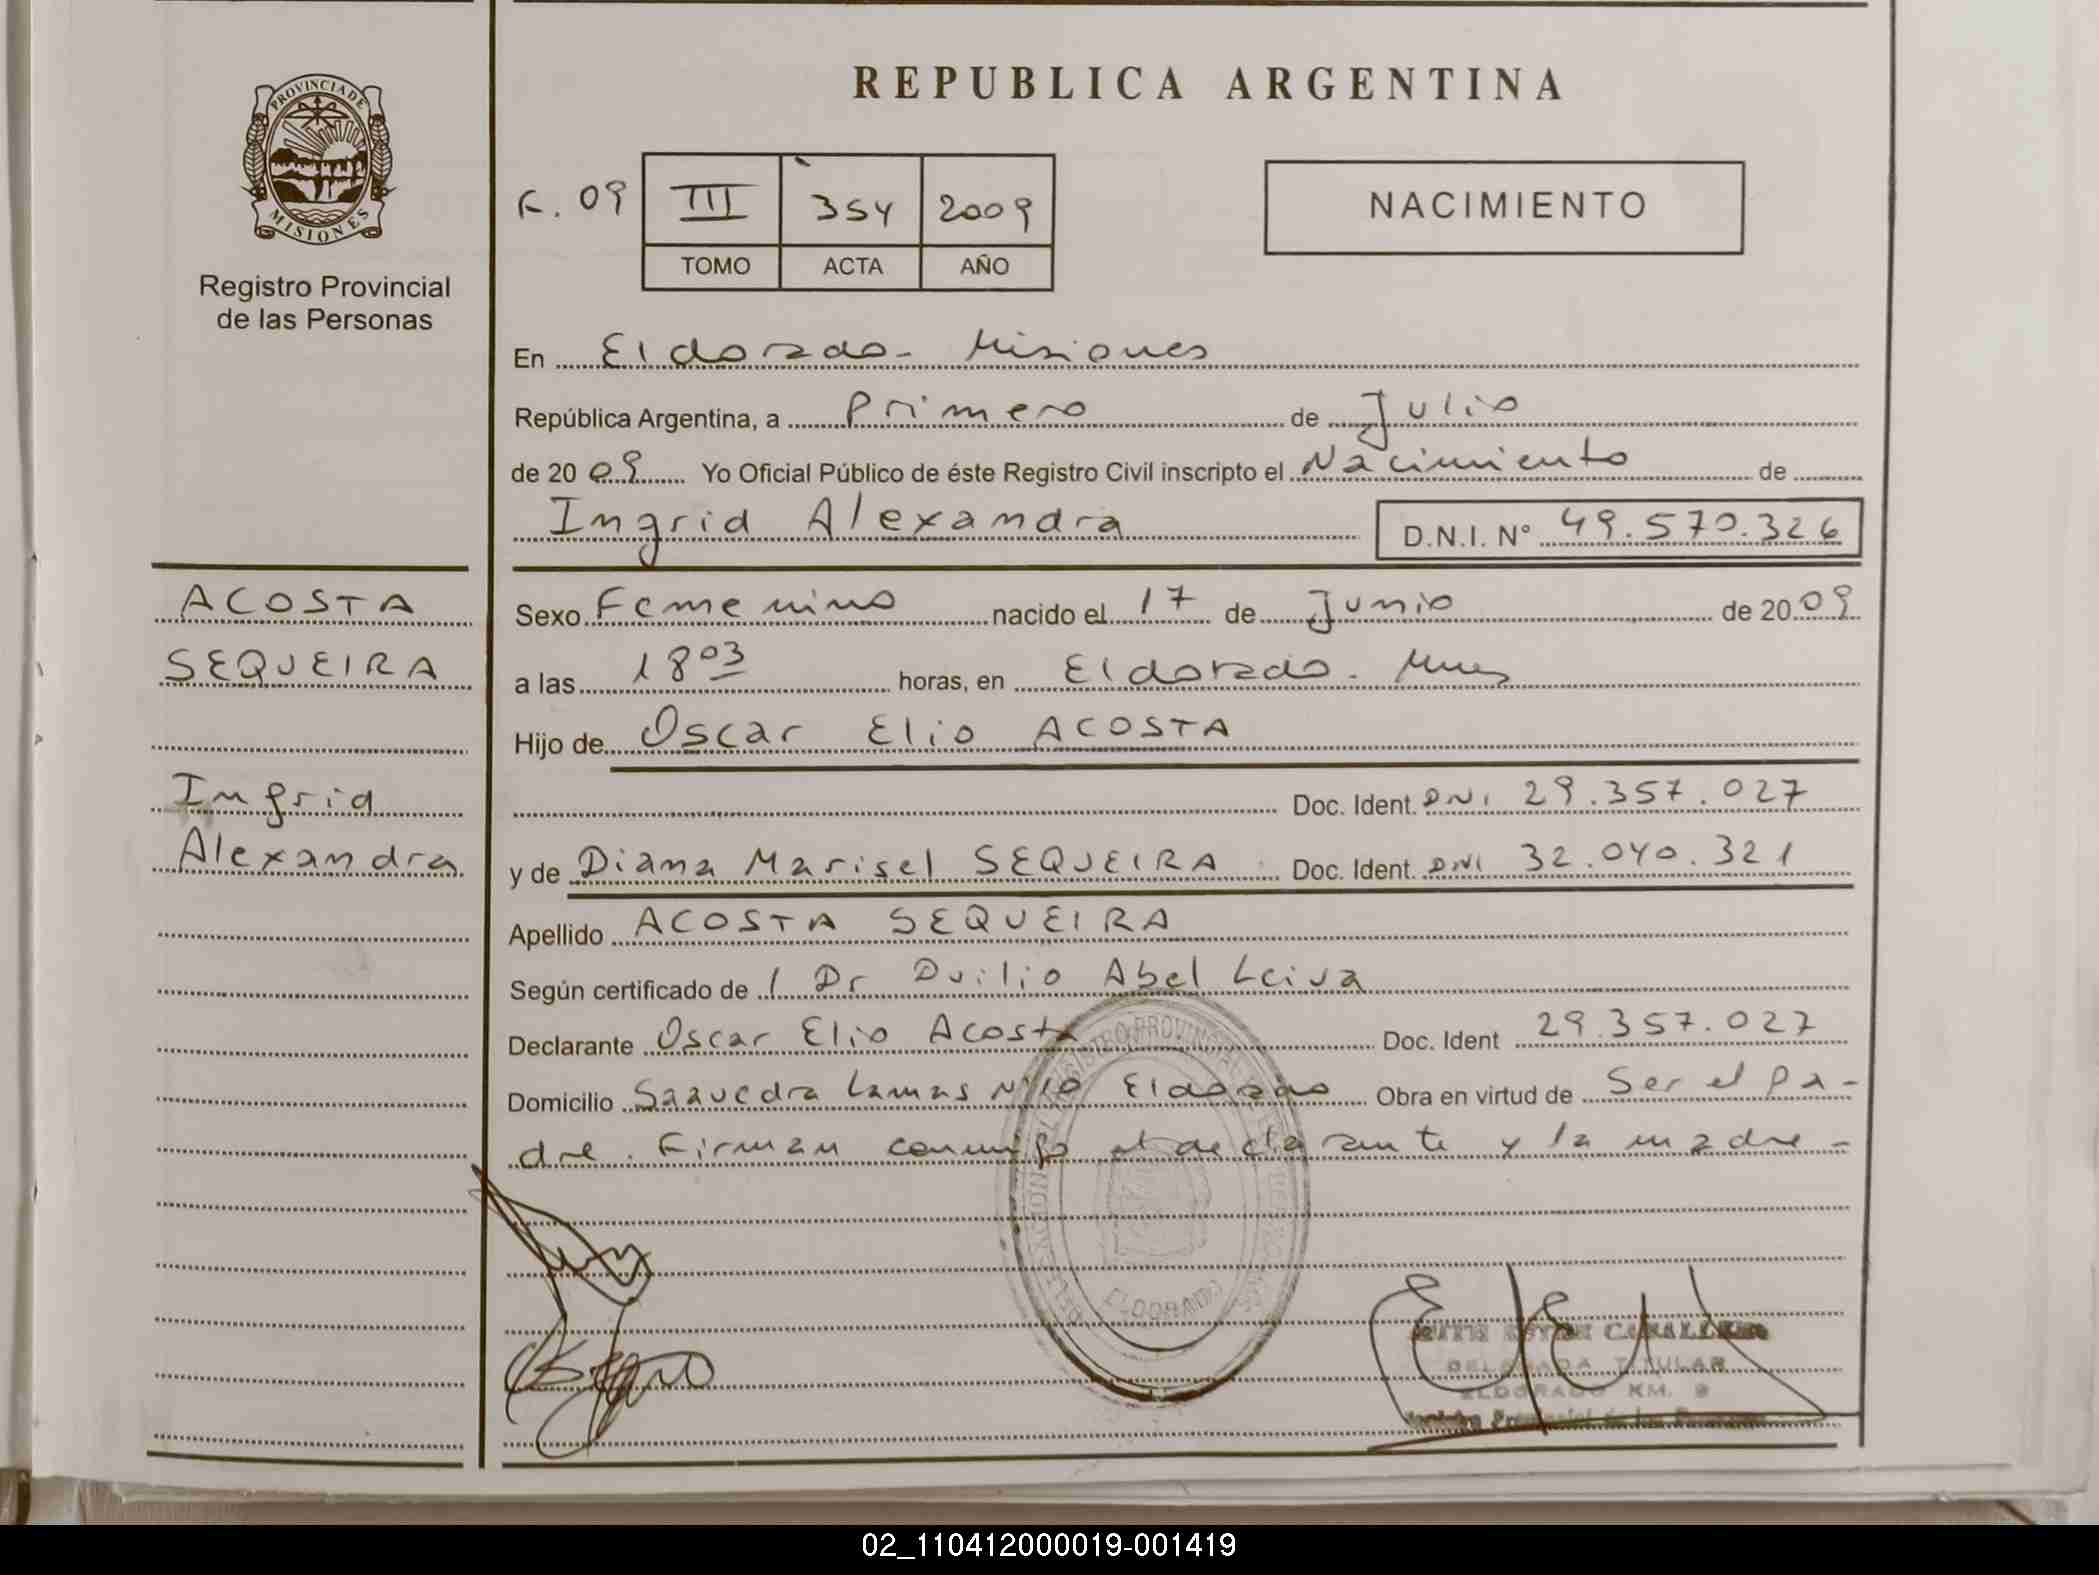 REPUBLICA ARGENTINA
PROVINCIA DE
MISIONES
Registro Provincial
de las Personas
F. 09 III 354 2009
TOMO ACTA AÑO
NACIMIENTO
En Eldorado - Misiones
República Argentina, a Primero de Julio
de 20 09 Yo Oficial Público de éste Registro Civil inscripto el Nacimiento de
Ingrid Alexandra D.N.I. N° 49.570.326
ACOSTA
SEQUEIRA
Ingrid
Alexandra
Sexo Femenino nacido el 17 de Junio de 20 09
a las 18 03 horas, en Eldorado - Mnes
Hijo de Oscar Elio ACOSTA
Doc. Ident. DNI 29.357.027
y de Diana Marisel SEQUEIRA Doc. Ident. DNI 32.040.321
Apellido ACOSTA SEQUEIRA
Según certificado de / Dr Duilio Abel Leiva
Declarante Oscar Elio Acosta Doc. Ident 29.357.027
Domicilio Saavedra Lamas Eldorado Obra en virtud de Ser el pa-
dre. Firman conmigo el declarante y la madre -
ELDORADO
CABALLERO
DELEGADA TITULAR
ELDORADO KM. 9
Registro Provincial de las Personas
02_110412000019-001419